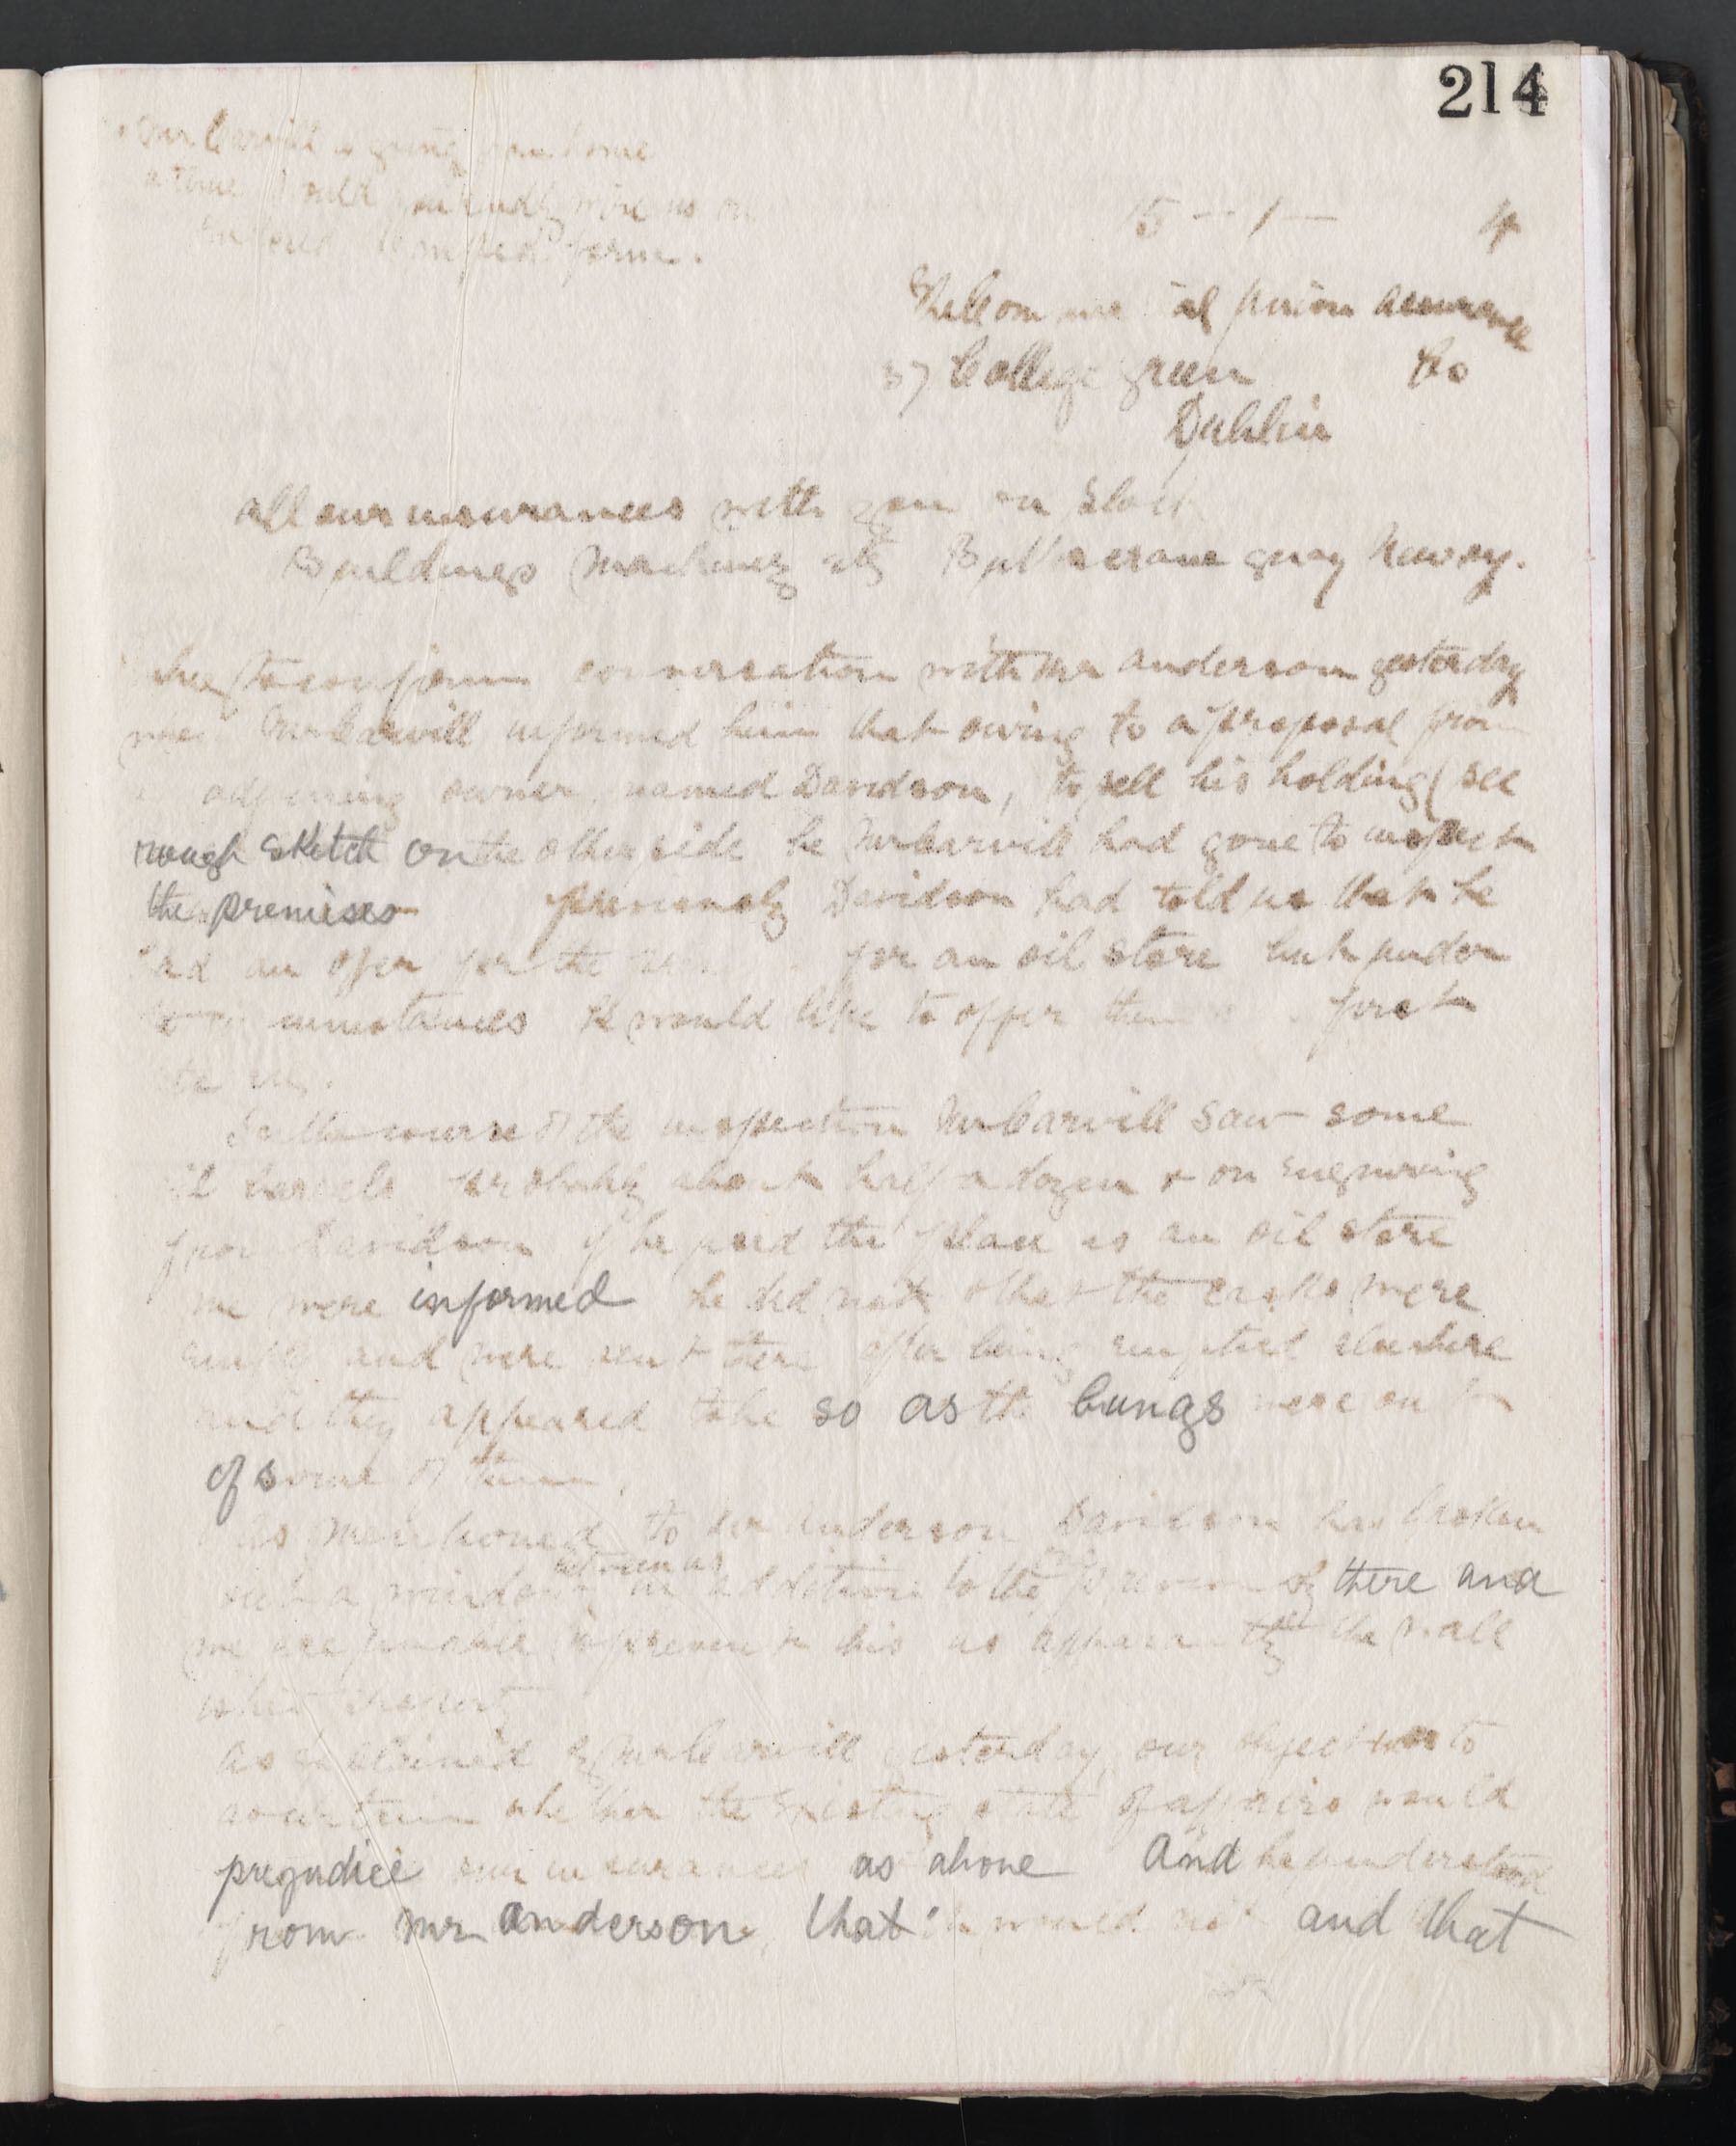 214
Mr Carvill is going from home
15 - 1 - 4
The Commercial Union Assurance
37 College Green Co
Dublin
all our insurances with you on Stock
Buildings Machinery etc Buttercrane quay Newry.
to confirm conversation with Mr Anderson yesterday
when Mr Carvill informed him that owing to a proposal from
adjoining owner, named Davidson, to sell his holding (see
rough sketch on the other side he Mr Carvill had gone to inspect
the premises previously Davidson had told us that he
had an offer for the for an oil store but under
circumstances he would like to offer them first
In the course of the inspection Mr Carvill saw some
oil barrels probably about half a dozen & on enquiring
from Davidson if he used the place as an oil store
we were informed he did not & that the casks were
empty and were sent there after being emptied elsewhere
and they appeared to be so as the bungs were out
of some of them.
As mentioned to Mr Anderson Davidson has broken
out a window between us in addition to the one previously there and
we are unable to prevent this as apparently the wall
is his property
As explained by Mr Carvill yesterday, our object was to
ascertain whether the existing state of affairs would
prejudice our insurances as above and he understood
from Mr Anderson, that it would not and that